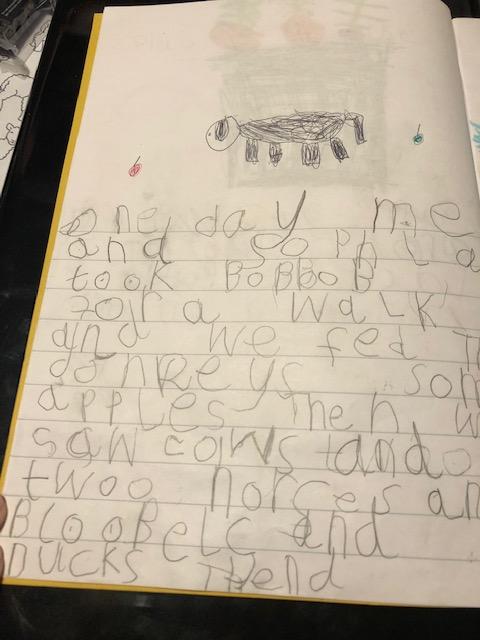 one day me
and sophia
took BoBBoB
for a walk
and we fed
donkeys som
apples Then w
saw cows and
twoo horces an
BlooBelc and
Ducks Thend